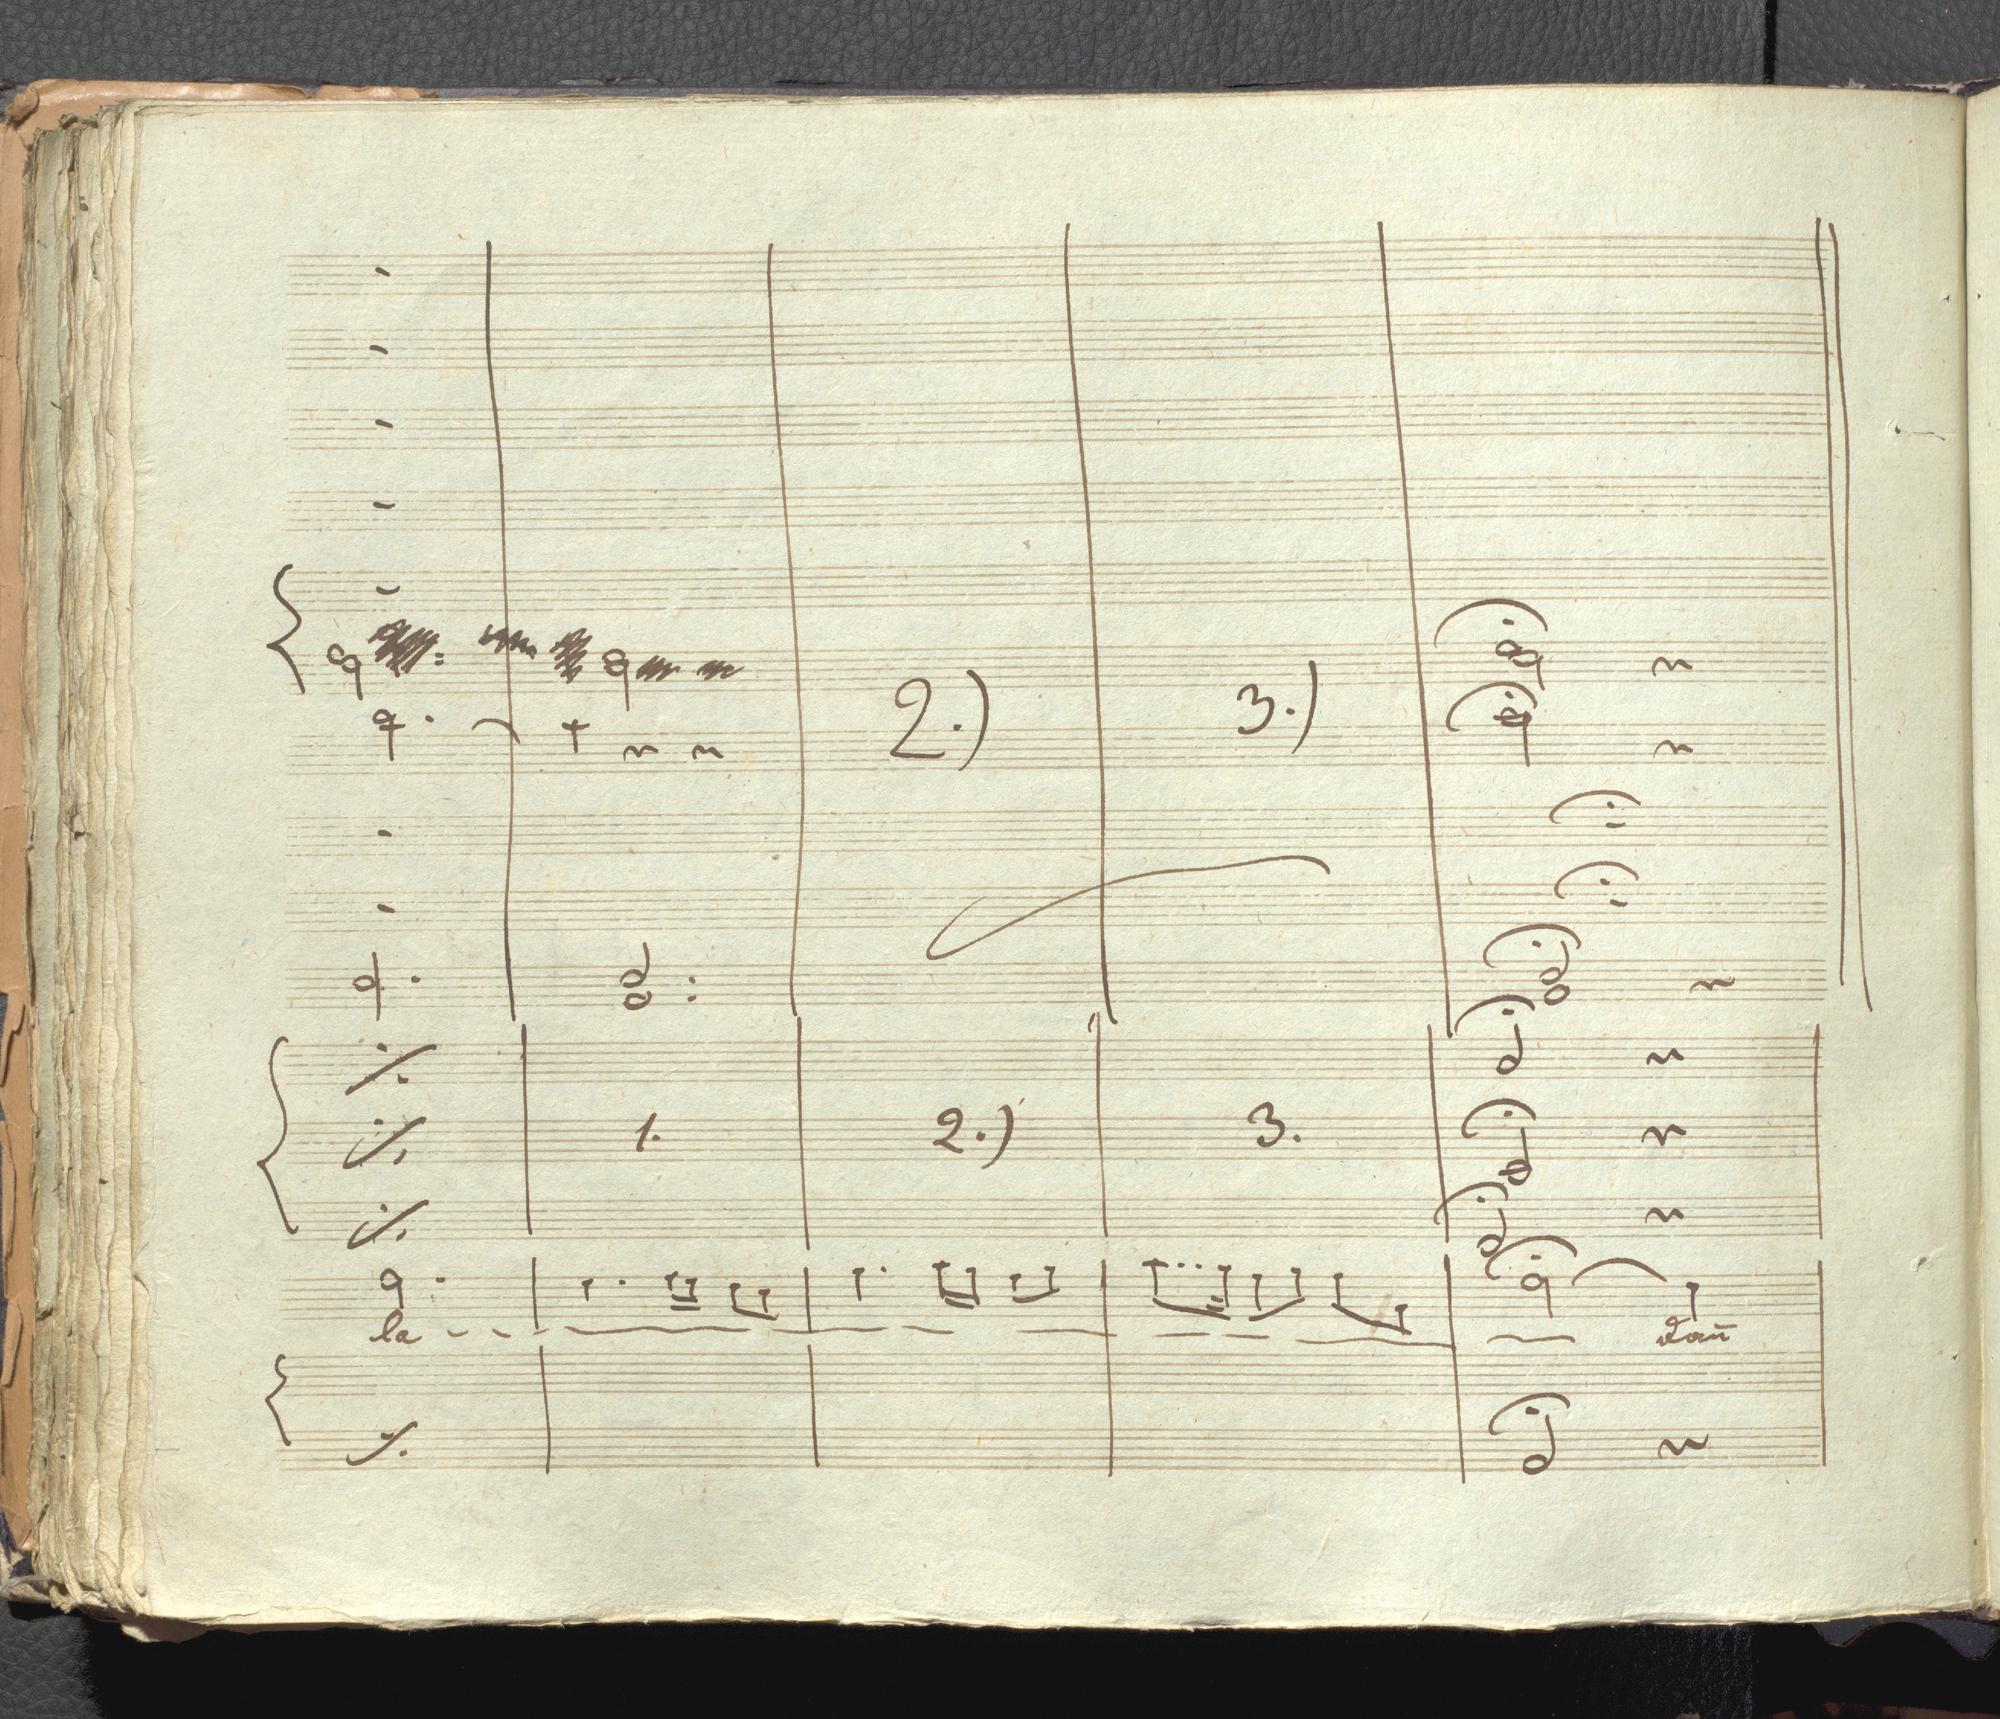 2.) 3.)
1. 2.) 3.
la